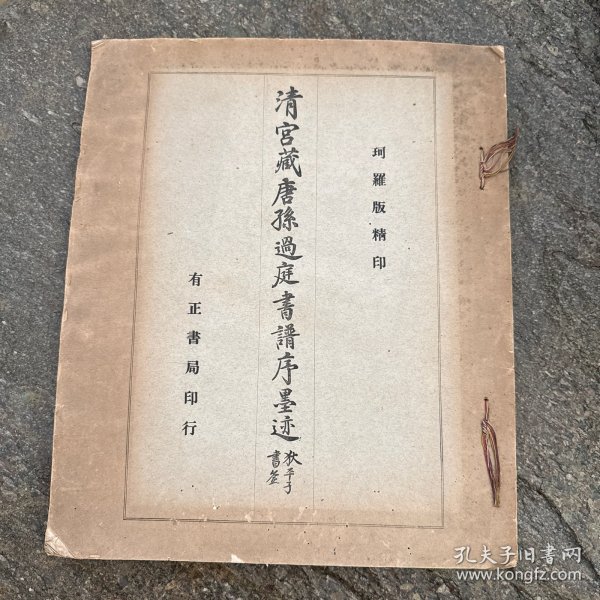 珂羅版精印
清宮藏唐孫過庭書譜序墨迹
狄平子
書签
有正書局印行
孔夫子旧書网
www.kongfz.com